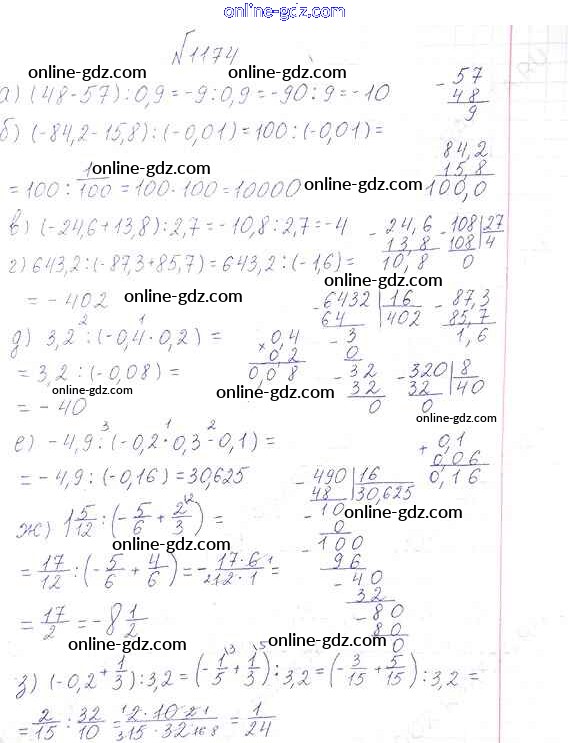 online-gdz.com
№1174
online-gdz.com online-gdz.com
а) (48-57):0,9=-9:0,9=-90:9=-10
- 57
48
9
б) (-84,2-15,8):(-0,01)=100:(-0,01)=
84,2
15,8
100,0
online-gdz.com
=100:1/100=100·100=10000 online-gdz.com
в) (-24,6+13,8):2,7=-10,8:2,7=-4
- 24,6
13,8
10,8
- 108|27
108|4
0
г) 643,2:(-87,3+85,7)=643,2:(-1,6)=
=-402 online-gdz.com online-gdz.com
- 6432|16
64|402
- 3
0
- 32
32
0
- 87,3
85,7
1,6
д) 3,2:(-0,4·0,2)=
2 1
× 0,4
0,2
0,08
=3,2:(-0,08)=
- 320|8
32|40
0
online-gdz.com online-gdz.com
=-40
online-gdz.com
е) -4,9:(-0,2·0,3-0,1)=
3 1 2
+ 0,1
0,06
0,16
=-4,9:(-0,16)=30,625
- 490|16
48|30,625
- 10
0
- 100
96
- 40
32
- 80
80
0
online-gdz.com online-gdz.com
ж) 1 5/12:(-5/6+2/3)=
online-gdz.com
=17/12:(-5/6+4/6)=-17·6/12·1=
=17/2=-8 1/2
online-gdz.com online-gdz.com
з) (-0,2+1/3):3,2=(-1/5+1/3):3,2=(-3/15+5/15):3,2=
online-gdz.com
=2/15:32/10=2·10/15·32=1/24
online-gdz.com